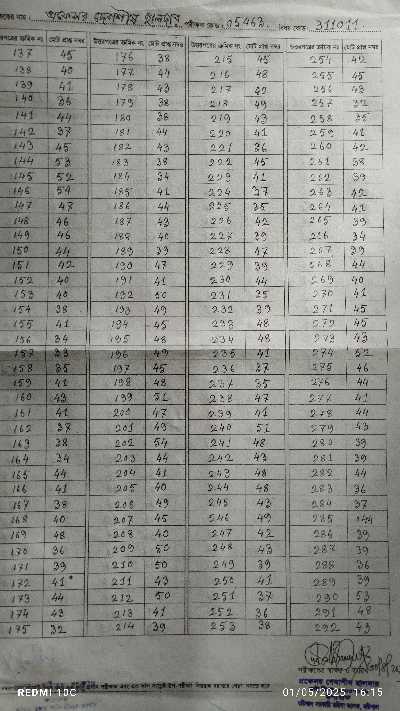 পরীক্ষক কোড: 05463 বিষয় কোড: 311011
উত্তরপত্রের ক্রমিক নং মোট প্রাপ্ত নম্বর উত্তরপত্রের ক্রমিক নং মোট প্রাপ্ত নম্বর উত্তরপত্রের ক্রমিক নং মোট প্রাপ্ত নম্বর
137 45 176 38 215 45 254 42
138 40 177 44 216 48 255 45
139 41 178 43 217 42 256 43
140 179 38 218 49 257 32
141 44 180 38 219 43 258 35
142 37 181 44 220 41 259 41
143 45 182 43 221 36 260 42
144 53 183 38 222 45 261 38
145 52 184 34 223 41 262 39
146 54 185 41 224 37 263 42
147 186 44 225 35 264 41
148 46 187 43 226 42 265 39
149 46 188 40 227 39 266 34
150 44 189 39 228 47 267 39
151 42 190 47 229 39 268 44
152 40 191 41 230 44 269 40
153 40 192 50 231 35 270 41
154 38 193 49 232 39 271 45
155 41 194 45 233 48 272 45
156 34 195 48 234 48 273 43
157 33 196 49 235 41 274 52
158 35 197 45 236 37 275 46
159 41 198 48 237 35 276 44
160 43 199 51 238 47 277 41
161 41 200 47 239 41 278 44
162 37 201 49 240 51 279 43
163 38 202 54 241 48 280 39
164 34 203 44 242 43 281 39
165 44 204 41 243 48 282 44
166 41 205 40 244 48 283 36
167 38 206 49 245 43 284 37
168 40 207 45 246 49 285 44
169 48 208 40 247 42 286 39
170 36 209 50 248 43 287 39
171 39 210 50 249 39 288 36
172 41 211 43 250 41 289 39
173 44 212 50 251 37 290 53
174 43 213 41 252 36 291 48
175 32 214 39 253 38 292 43
REDMI 10C
01/05/2025 16:15